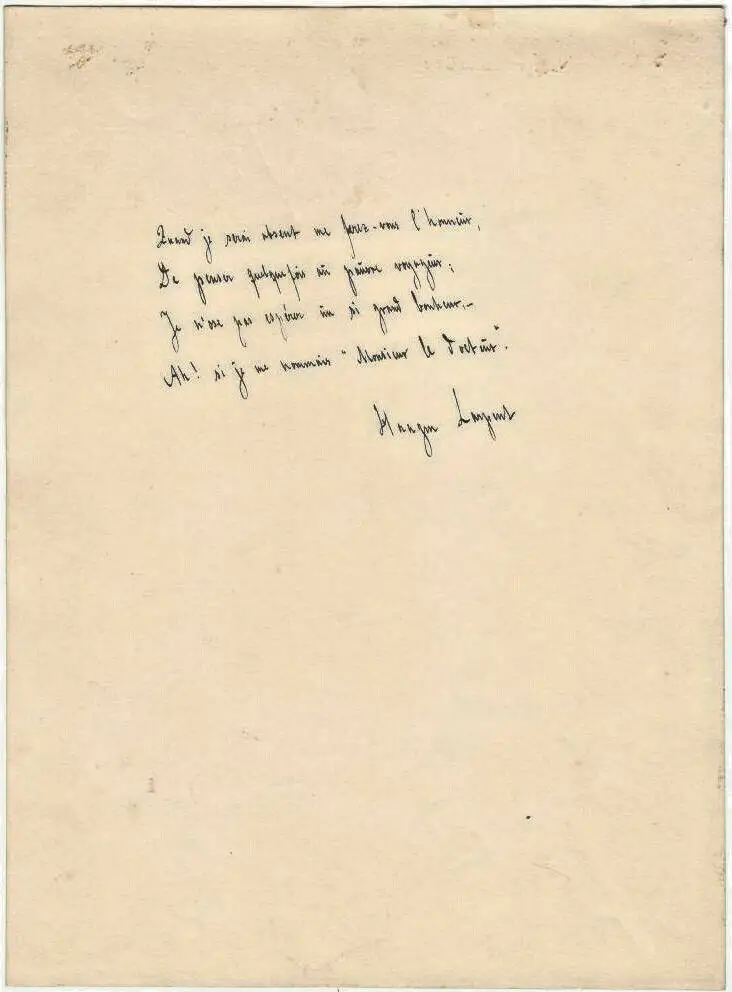 Quand je serai absent me ferez-vous l'honneur,
De penser quelquefois au pauvre voyageur;
Je n'ose pas espérer un si grand bonheur,-
Ah! si je me nommais "Monsieur le Docteur".
Haagen Largent